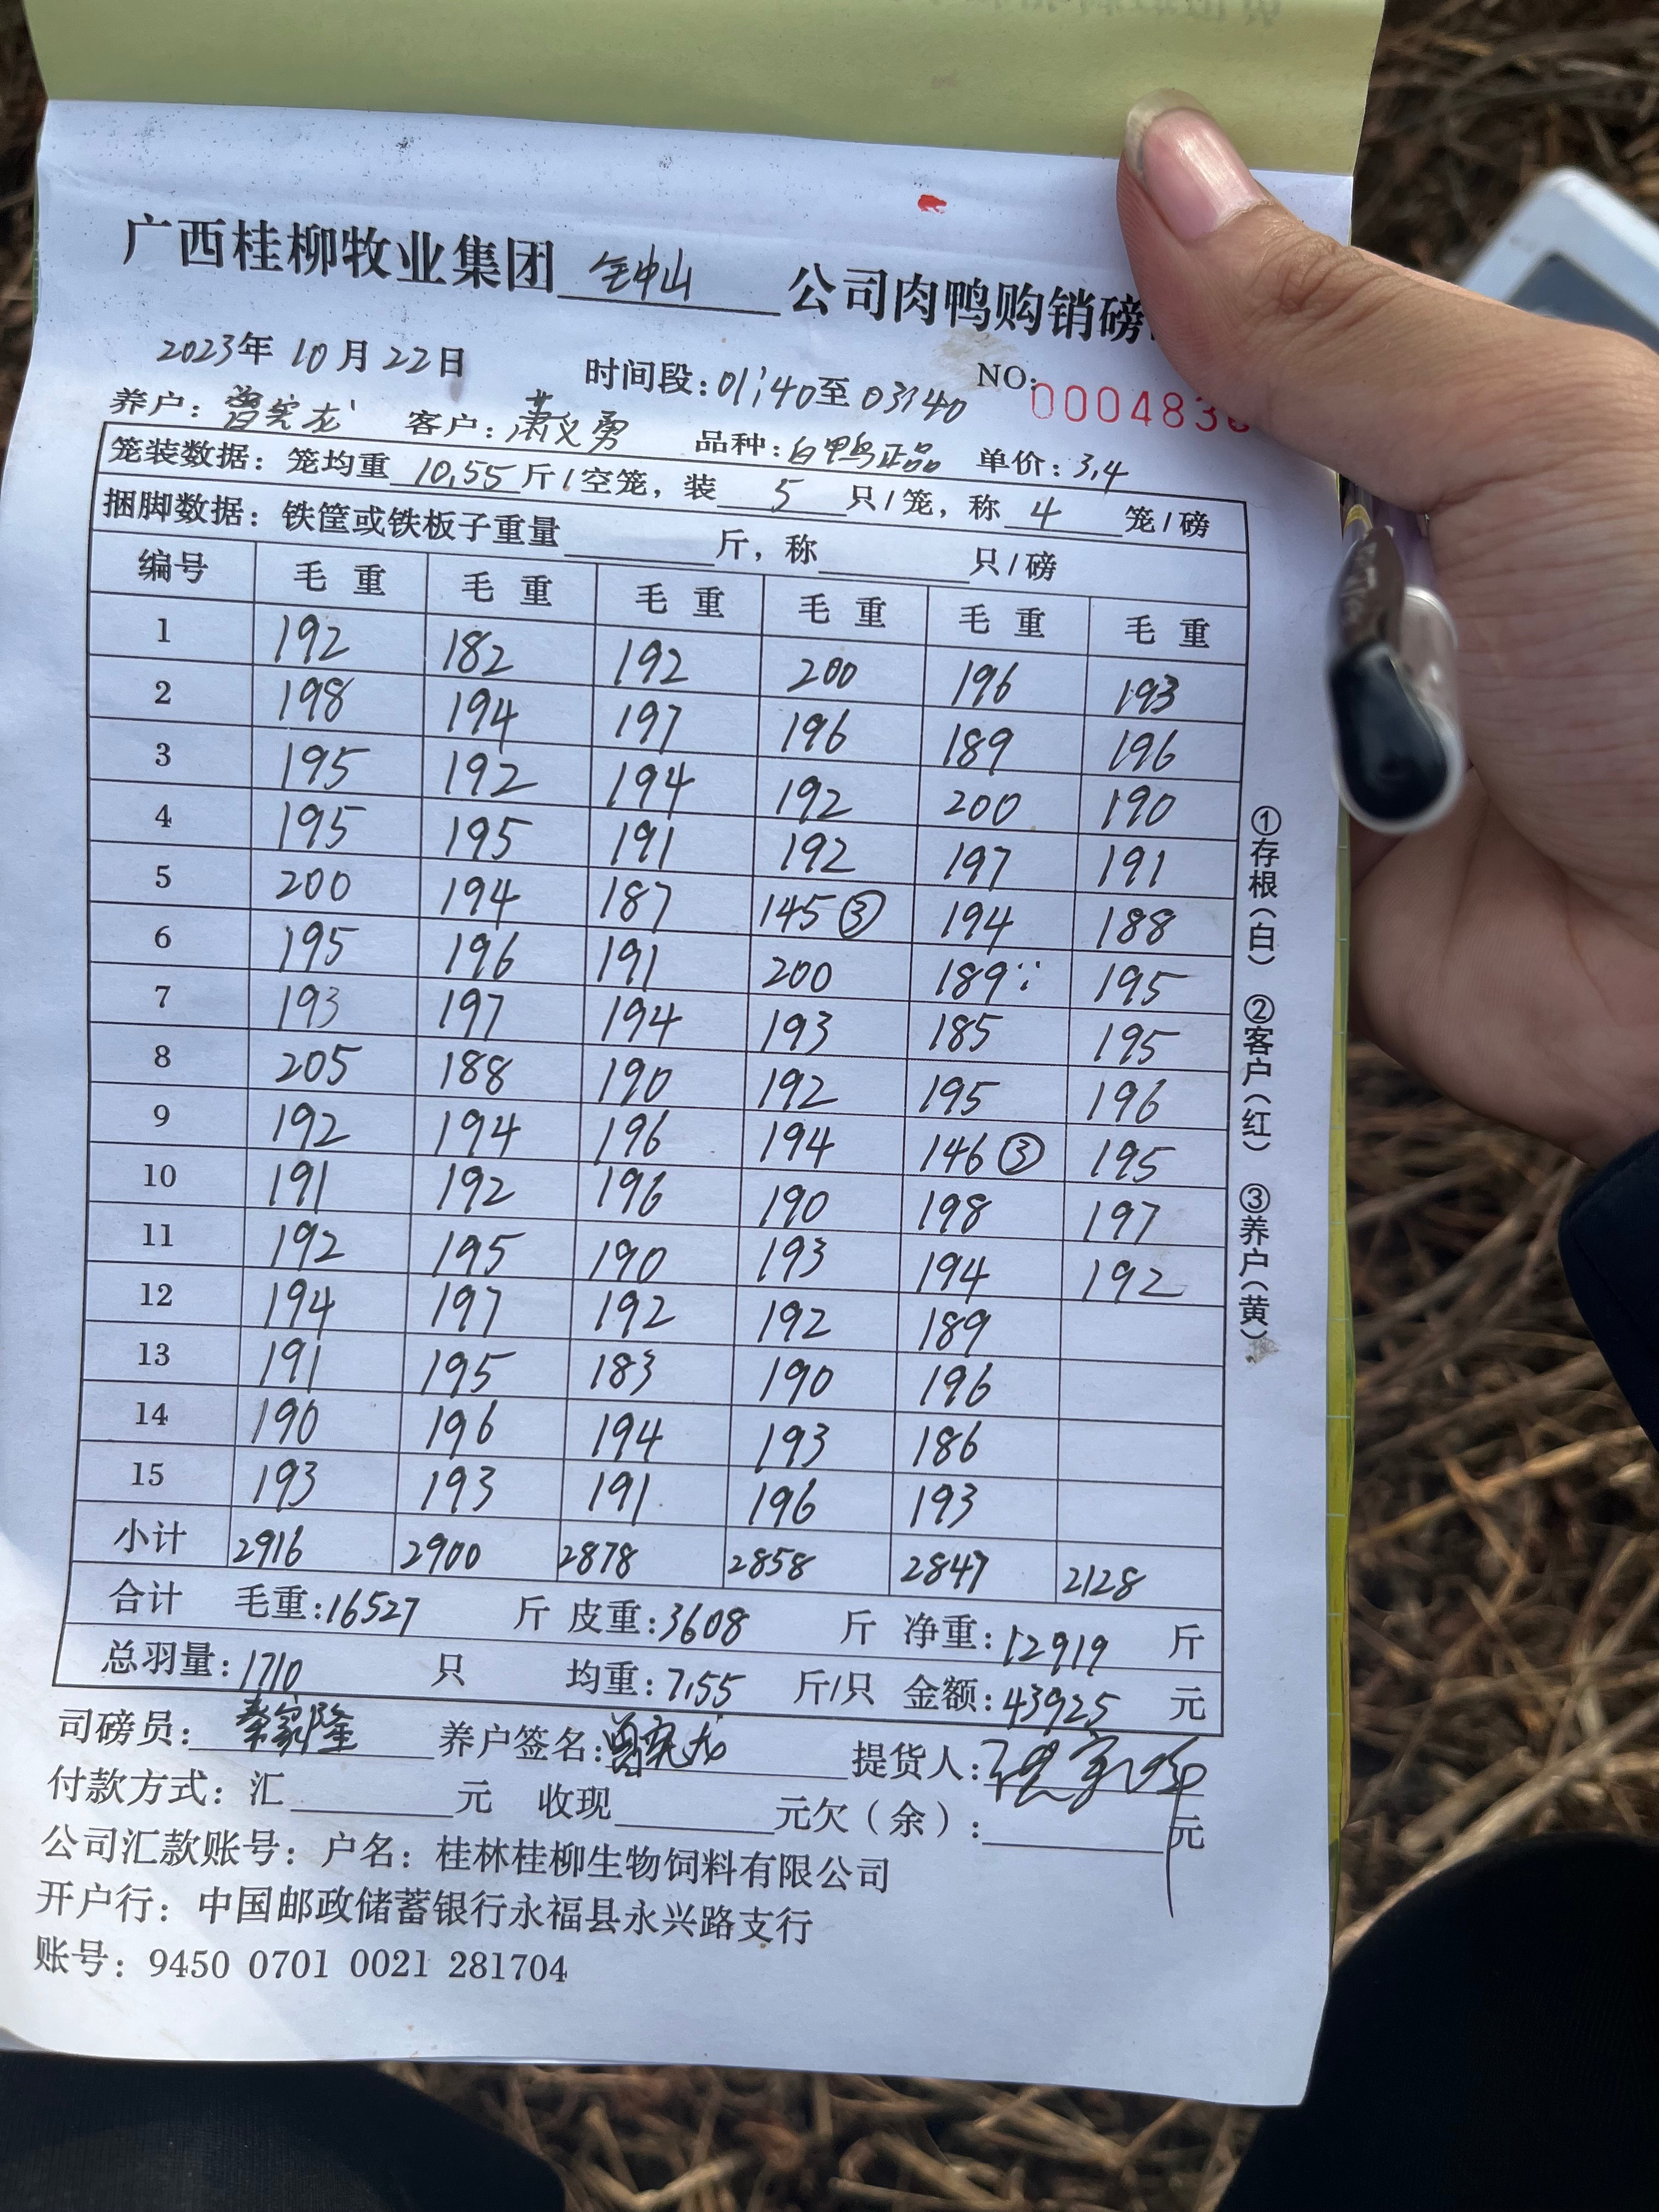 广西桂柳牧业集团 钟山 公司肉鸭购销磅
2023年 10月22日 时间段:01:40至03:40 NO:000483
养户:曾宪龙 客户:萧义勇 品种:白鸭正品 单价:3.4
笼装数据:笼均重 10.55 斤/空笼,装 5 只/笼,称 4 笼/磅
捆脚数据:铁筐或铁板子重量 斤,称 只/磅
编号 毛重 毛重 毛重 毛重 毛重 毛重
1 192 182 192 200 196 193
2 198 194 197 196 189 196
3 195 192 194 192 200 190
4 195 195 191 192 197 191
5 200 194 187 145③ 194 188
6 195 196 191 200 189 195
7 193 197 194 193 185 195
8 205 188 190 192 195 196
9 192 194 196 194 146③ 195
10 191 192 196 190 198 197
11 192 195 190 193 194 192
12 194 197 192 192 189
13 191 195 183 190 196
14 190 196 194 193 186
15 193 193 191 196 193
小计 2916 2900 2878 2858 2847 2128
合计 毛重:16527 斤 皮重:3608 斤 净重:12919 斤
总羽量:1710 只 均重:7.55 斤/只 金额:43925 元
司磅员: 秦家隆 养户签名:曾宪龙 提货人:
付款方式:汇 元 收现 元欠(余): 元
公司汇款账号:户名:桂林桂柳生物饲料有限公司
开户行:中国邮政储蓄银行永福县永兴路支行
账号:9450 0701 0021 281704
①存根(白) ②客户(红) ③养户(黄)